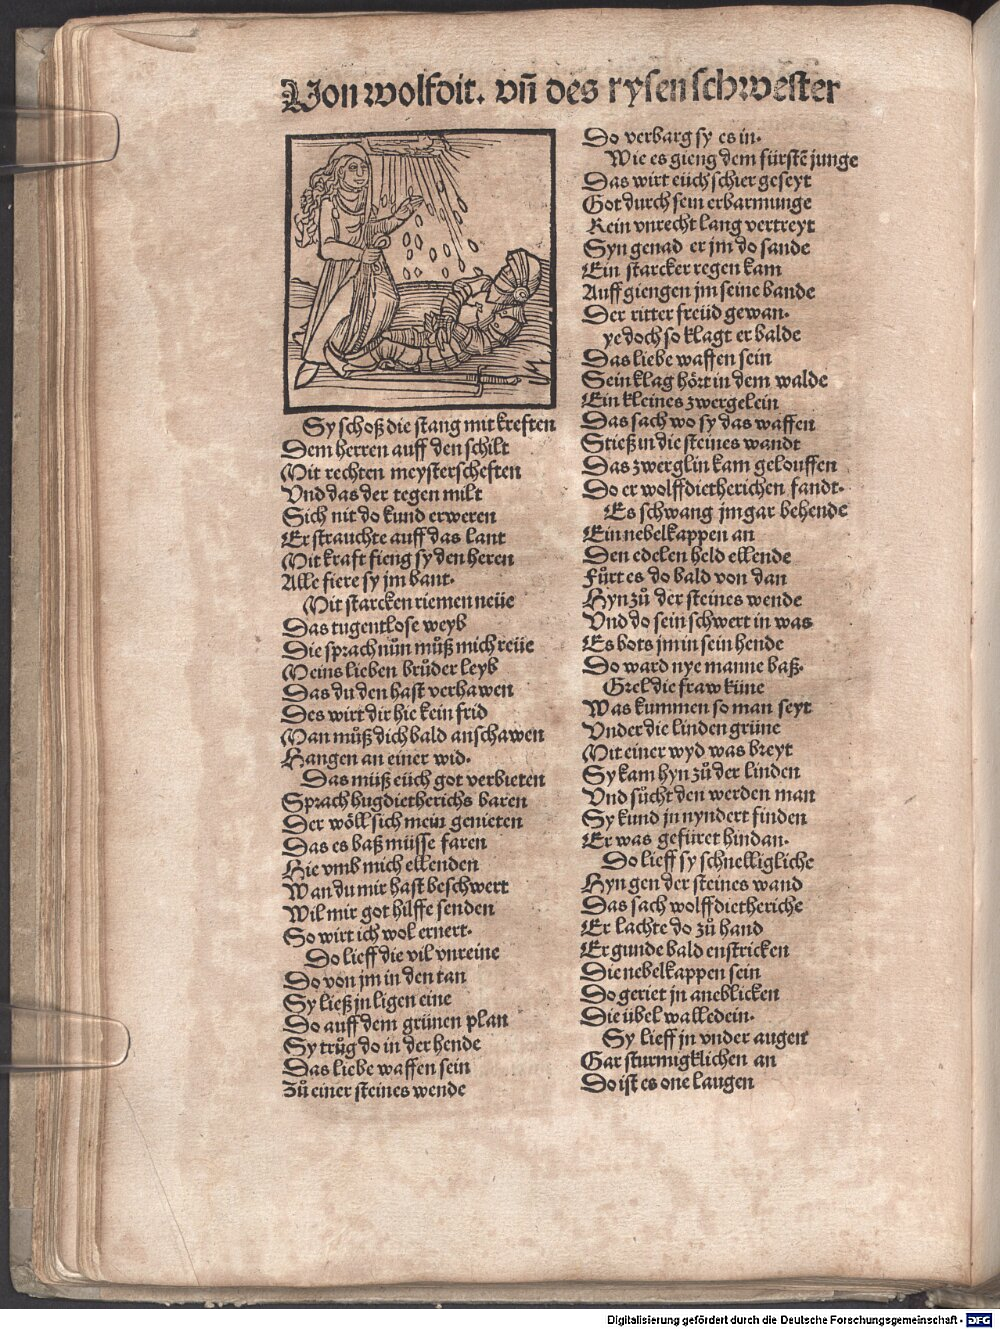 Von wolfdit. vñ des rysen schwester
Sy schoß die stang mit kreften
Dem herren auff den schilt
Mit rechten meysterscheften
Vnd das der tegen milt
Sich nit do kund erweren
Er strauchte auff das lant
Mit kraft fieng sy den heren
Alle fiere sy jm bant.
Mit starcken riemen neüe
Das tugentlose weyb
Die sprach nůn můß mich reüe
Meins lieben brůder leyb
Das du den hast verhawen
Des wirt dir hie kein frid
Man můß dich bald anschawen
Hangen an einer wid.
Das müß eüch got verbieten
Sprach hugdietherichs baren
Der wöll sich mein genieten
Das es baß müsse faren
Hie vmb mich ellenden
Wan du mir hast beschwert
Wil mir got hilffe senden
So wirt ich wol ernert.
Do lieff die vil vnreine
Do von jm in den tan
Sy ließ jn ligen eine
Do auff dem grünen plan
Sy trůg do in der hende
Das liebe waffen sein
Zů einer steines wende
Do verbarg sy es in.
Wie es gieng dem fürstẽ junge
Das wirt eüch schier geseyt
Got durch sein erbarmunge
Kein vnrecht lang vertreyt
Syn genad er jm do sande
Ein starcker regen kam
Auff giengen jm seine bande
Der ritter freüd gewan.
ye doch so klagt er balde
Das liebe waffen sein
Sein klag hört in dem walde
Ein kleines zwergelein
Das sach wo sy das waffen
Stieß in die steines wandt
Das zwerglin kam gelouffen
Do er wolffdietherichen fandt.
Es schwang jm gar behende
Ein nebelkappen an
Den edelen held ellende
Fůrt es do bald von dan
Hyn zů der steines wende
Vnd do sein schwert in was
Es bots jm in sein hende
Do ward nye manne baß.
Grel die fraw küne
Was kummen so man seyt
Vnder die linden grüne
Mit einer wyd was breyt
Sy kam hyn zů der linden
Vnd sůcht den werden man
Sy kund jn nyndert finden
Er was gefüret hindan.
Do lieff sy schnelligliche
Hyn gen der steines wand
Das sach wolffdietheriche
Er lachte do zů hand
Er gunde bald enstricken
Die nebelkappen sein
Do geriet jn aneblicken
Die übel walledein.
Sy lieff jn vnder augen
Gar sturmigklichen an
Do ist es one laugen
Digitalisierung gefördert durch die Deutsche Forschungsgemeinschaft - DFG